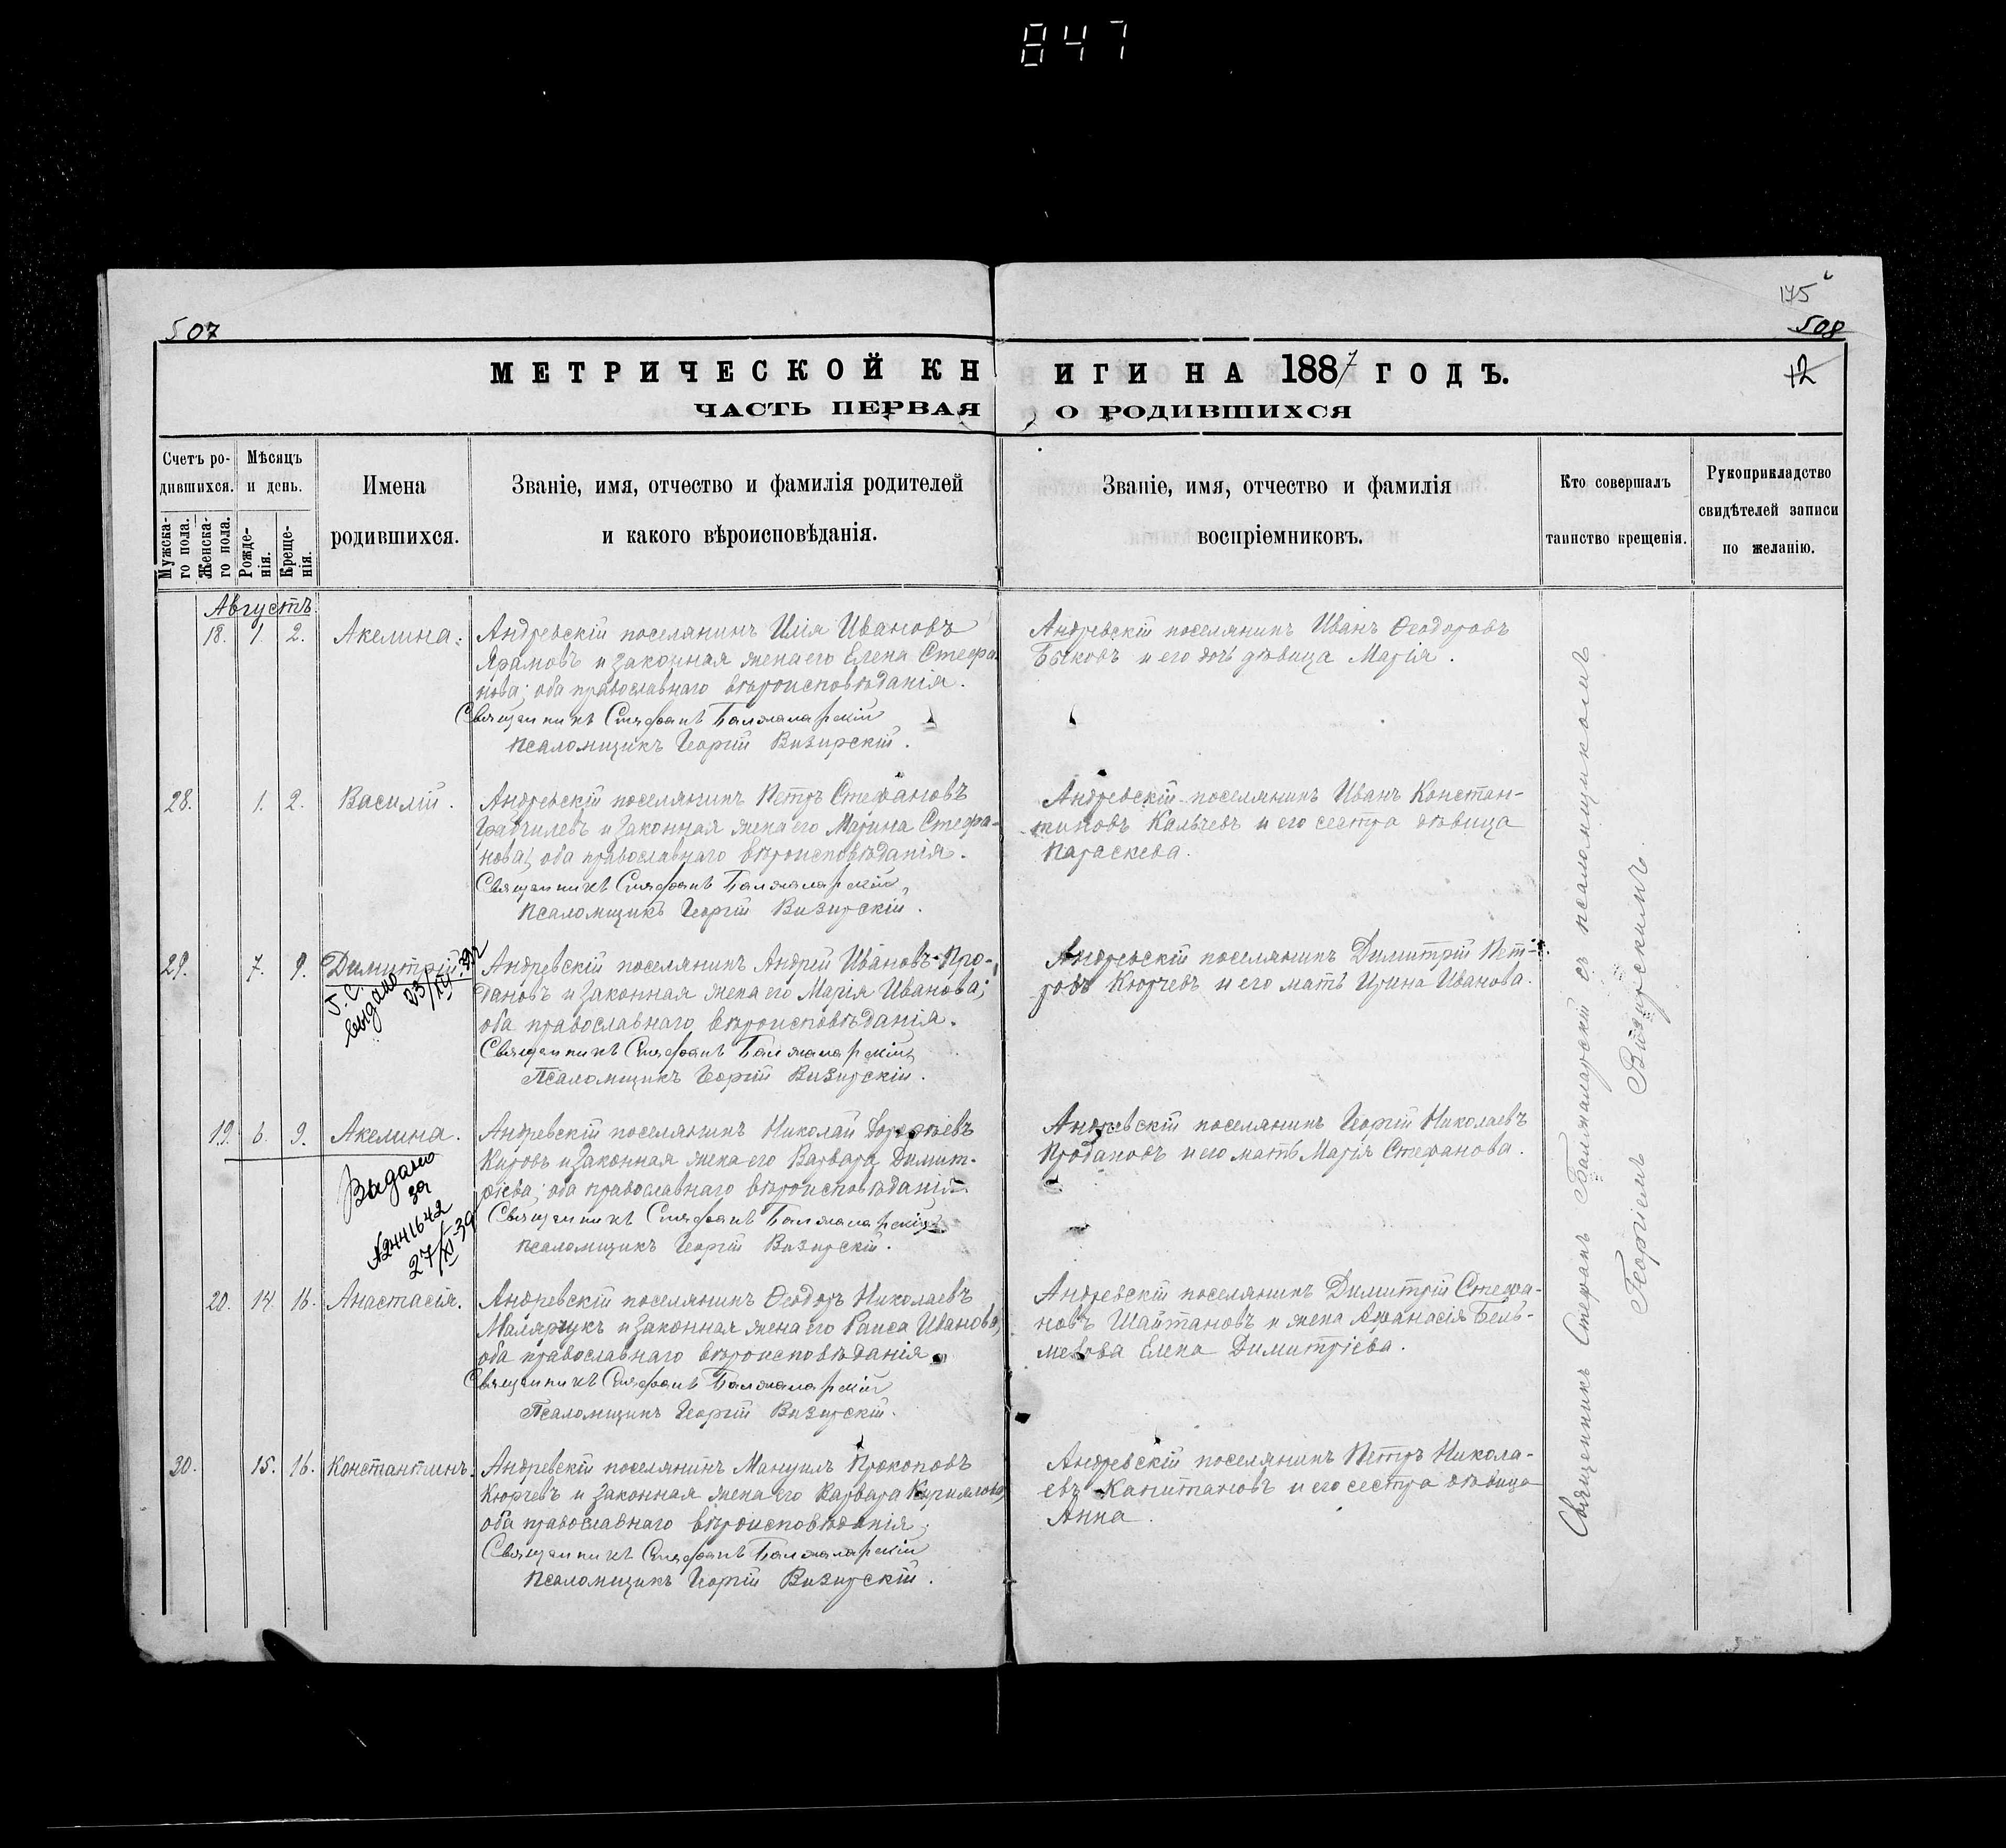 847
175
507
508
МЕТРИЧЕСКОЙ КНИГИ НА 1887 ГОДЪ.
12
ЧАСТЬ ПЕРВАЯ О РОДИВШИХСЯ
Счетъ родившихся.
Мужскаго пола.
Женскаго пола.
Мѣсяцъ и день.
Рожденія.
Крещенія.
Имена родившихся.
Званіе, имя, отчество и фамилія родителей
и какого вѣроисповѣданія.
Званіе, имя, отчество и фамилія
воспріемниковъ.
Кто совершалъ
таинство крещенія.
Рукоприкладство
свидѣтелей записи
по желанію.
Августъ
18. 1. 2. Акелина. Андреевскій поселянинъ Илія Ивановъ
и законная жена его Елена Стефа-
нова; оба православнаго вѣроисповѣданія.
Священникъ Стефанъ Балжаларскій
Псаломщикъ Георгій Визирскій.
Андреевскій поселянинъ Иванъ Ѳеодоровъ
Быковъ и его дочь дѣвица Марія.
28. 1. 2. Василій. Андреевскій поселянинъ Петръ Стефановъ
и законная жена его Марина Стефа-
нова; оба православнаго вѣроисповѣданія.
Священникъ Стефанъ Балжаларскій
Псаломщикъ Георгій Визирскій.
Андреевскій поселянинъ Иванъ Констан-
тиновъ Кальчевъ и его сестра дѣвица
Параскева.
29. 7. 9. Димитрій. Андреевскій поселянинъ Андрей Ивановъ Про-
дановъ и законная жена его Марія Иванова;
оба православнаго вѣроисповѣданія.
Священникъ Стефанъ Балжаларскій
Псаломщикъ Георгій Визирскій.
выдано
Андреевскій поселянинъ Димитрій Пет-
ровъ Кюрчевъ и его мать Ирина Иванова.
19. 6. 9. Акелина. Андреевскій поселянинъ Николай
Кировъ и законная жена его Варвара Димит-
ріева; оба православнаго вѣроисповѣданія.
Священникъ Стефанъ Балжаларскій
Псаломщикъ Георгій Визирскій.
Выдано
за
№2441642
27/XI-39
Андреевскій поселянинъ Георгій Николаевъ
Продановъ и его мать Марія Стефанова.
20. 14. 16. Анастасія. Андреевскій поселянинъ Ѳеодоръ Николаевъ
Малярчукъ и законная жена его Раиса Иванова;
оба православнаго вѣроисповѣданія.
Священникъ Стефанъ Балжаларскій
Псаломщикъ Георгій Визирскій.
Андреевскій поселянинъ Димитрій Стефа-
новъ Шайтановъ и жена Аѳанасія Бель-
Елена Димитріева.
30. 15. 16. Константинъ. Андреевскій поселянинъ Мануилъ Прокоповъ
Кюрчевъ и законная жена его Варвара Кириллова;
оба православнаго вѣроисповѣданія;
Священникъ Стефанъ Балжаларскій
Псаломщикъ Георгій Визирскій.
Андреевскій поселянинъ Петръ Никола-
евъ Капитановъ и его сестра дѣвица
Анна.
Священникъ Стефанъ Балжаларскій съ псаломщикомъ
Георгіемъ Визирскимъ.